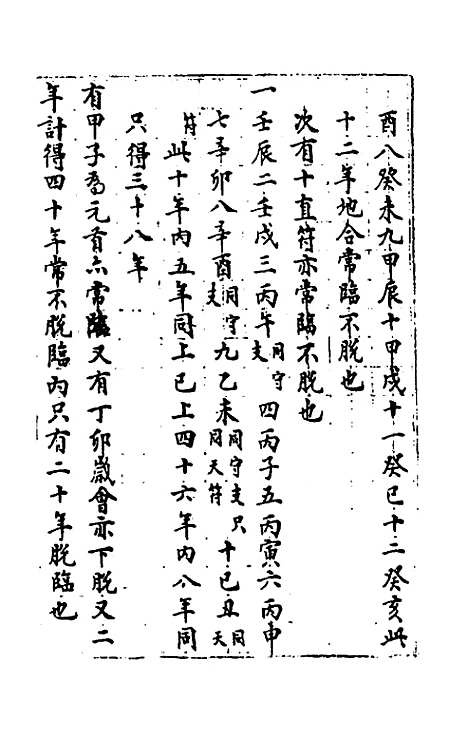 酉八癸未九甲辰十甲戌十一癸巳十二癸亥此
十二年地合常臨不脫也
次有十直符亦常臨不脫也
一壬辰二壬戌三丙午同守支四丙子五丙寅六丙申
七辛卯八辛酉同守支九乙未同守支只同天符十己丑同天
符此十年內五年同上已上四十六年內八年同
只得三十八年
有甲子為元首亦常臨又有丁卯歲會亦下脫又二
年計得四十年常不脫臨內只有二十年脫臨也